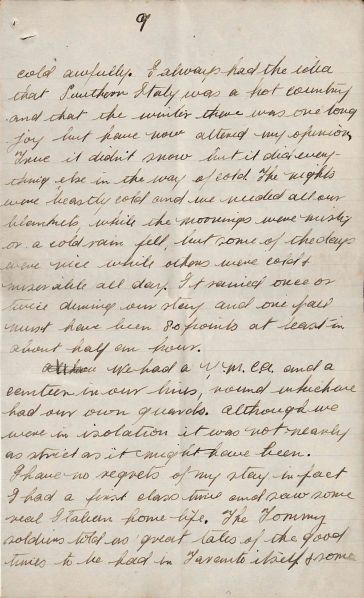 9
cold awfully. I always had the idea
that Southern Italy was a hot country
and that the winter there was one long
joy but have now altered my opinion,
True it didn't snow but it did every-
thing else in the way of cold The nights
were beastly cold and we needed all our
blankets, while the mornings were misty
or a cold rain fell, but some of the days
were nice while others were cold &
miserable all day. It rained once or
twice during our stay and one fall
must have been 80 points at least in
about half an hour.
We had a Y.M.C.A. and a
canteen in our lines, round which we
had our own guards. Although we
were in isolation it was not nearly
as strict as it might have been.
I have no regrets of my stay in fact
I had a first class time and saw some
real Italian home life. The Tommy
soldiers told us great tales of the good
times to be had in Taranto itself & some